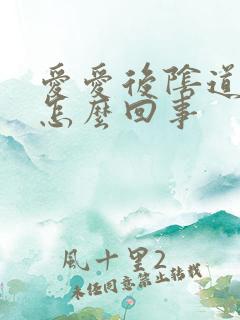 愛愛後陰道
怎麼回事
風十里2
未經同意禁止轉載